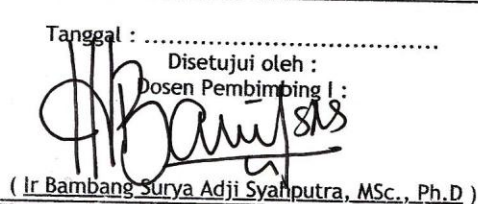 Tanggal : ......................................
Disetujui oleh :
Dosen Pembimbing I :
( Ir Bambang Surya Adji Syahputra, MSc., Ph.D )